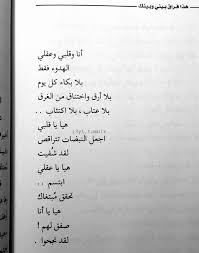 هذا فراق بيني وبينك
أنا وقلبي وعقلي
الهدوء فقط
بلا بكاء كل يوم
بلا أرق واختناق من الغرق
بلا عتاب ، بلا اكتئاب ..
هيا يا قلبي
اجعل النبضات تتراقص
لقد شُفيت
هيا يا عقلي
ابتسم ..
تحقق مُبتغاك
هيا يا أنا
صفق لهم !
لقد نجحوا .